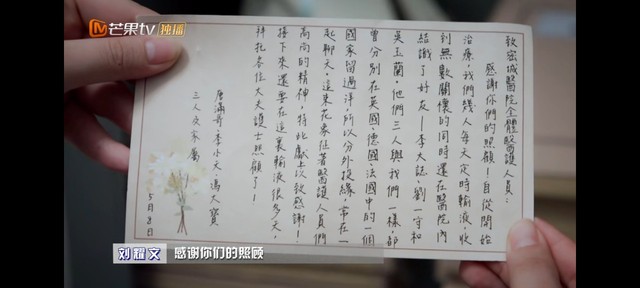 芒果tv 独播
致密城醫院全體醫護人員:
感謝你們的照顧!自從開始
治療,我們幾人每天定時輸液,收
到無數關懷的同時還在醫院內
結識了好友——李太記、劉一守和
吳玉蘭,他們三人與我們一樣都
曾分別在英國、德國、法國中的一個
國家留過洋,所以分外投緣,常在一
起聊天。這束花象征著醫護人員們
高尚的精神,特此獻上以致感謝!
接下來還要在這裏輸液很多天,
拜托各位大夫護士照顧了!
唐滿哥、李小天、馮大寶
三人及家屬
5月8日
刘耀文 感谢你们的照顾